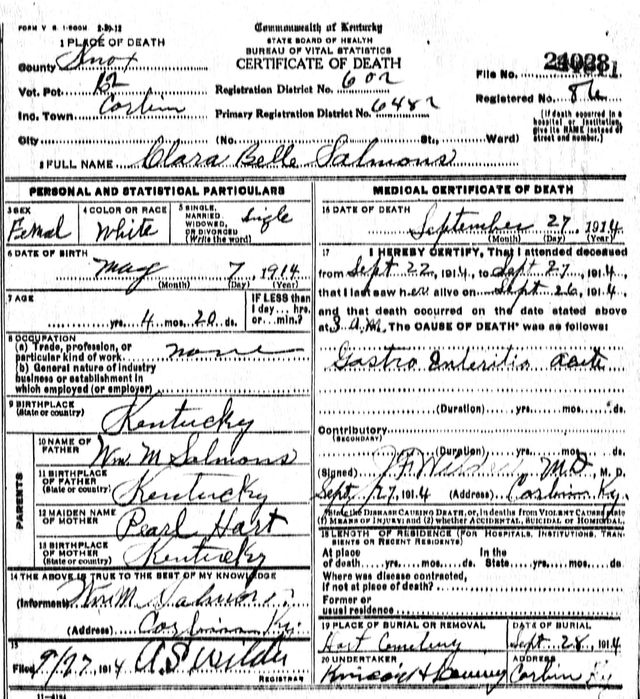 FORM V. S. 1-500M 2-20-12
Commonwealth of Kentucky
STATE BOARD OF HEALTH
BUREAU OF VITAL STATISTICS
CERTIFICATE OF DEATH
1 PLACE OF DEATH
County Knox
Vot. Pct
Inc. Town Corbin
City
Registration District No. 602
Primary Registration District No. 6482
(No. St., Ward)
File No.
Registered No. 86
(If death occurred in a hospital or institution, give its NAME instead of street and number.)
2 FULL NAME Clara Belle Salmons
PERSONAL AND STATISTICAL PARTICULARS
3 SEX Femal
4 COLOR OR RACE White
5 SINGLE, MARRIED, WIDOWED, OR DIVORCED (Write the word) Single
6 DATE OF BIRTH
May 7, 1914
(Month) (Day) (Year)
7 AGE
yrs. 4 mos. 20 ds.
IF LESS than 1 day... hrs. or... min.?
8 OCCUPATION
(a) Trade, profession, or particular kind of work none
(b) General nature of industry business or establishment in which employed (or employer)
9 BIRTHPLACE (State or country) Kentucky
PARENTS
10 NAME OF FATHER Wm. M Salmons
11 BIRTHPLACE OF FATHER (State or country) Kentucky
12 MAIDEN NAME OF MOTHER Pearl Hart
13 BIRTHPLACE OF MOTHER (State or country) Kentucky
14 THE ABOVE IS TRUE TO THE BEST OF MY KNOWLEDGE
(Informant) Wm. M. Salmons
(Address) Corbin Ky.
15
Filed 9/27 1914 A.S. Wilder
REGISTRAR
MEDICAL CERTIFICATE OF DEATH
16 DATE OF DEATH
September 27 1914
(Month) (Day) (Year)
17 I HEREBY CERTIFY, That I attended deceased
from Sept 22, 1914, to Sept 27, 1914,
that I last saw her alive on Sept 26, 1914,
and that death occurred on the date stated above
at 3 A.M. The CAUSE OF DEATH* was as follows:
Gastro Interitis
(Duration) yrs. mos. ds.
Contributory
(SECONDARY)
(Duration) yrs. mos. ds.
(Signed) M.D., M. D.
Sept. 27, 1914 (Address) Corbin Ky.
*State the DISEASE CAUSING DEATH, or, in deaths from VIOLENT CAUSES state (1) MEANS OF INJURY; and (2) whether ACCIDENTAL, SUICIDAL OR HOMICIDAL.
18 LENGTH OF RESIDENCE (FOR HOSPITALS, INSTITUTIONS, TRANSIENTS OR RECENT RESIDENTS)
At place of death yrs. mos. ds. In the State yrs. mos. ds.
Where was disease contracted, if not at place of death?
Former or usual residence
19 PLACE OF BURIAL OR REMOVAL Hart Cemetery
DATE OF BURIAL Sept. 28, 1914
20 UNDERTAKER
ADDRESS Corbin Ky
11-6184